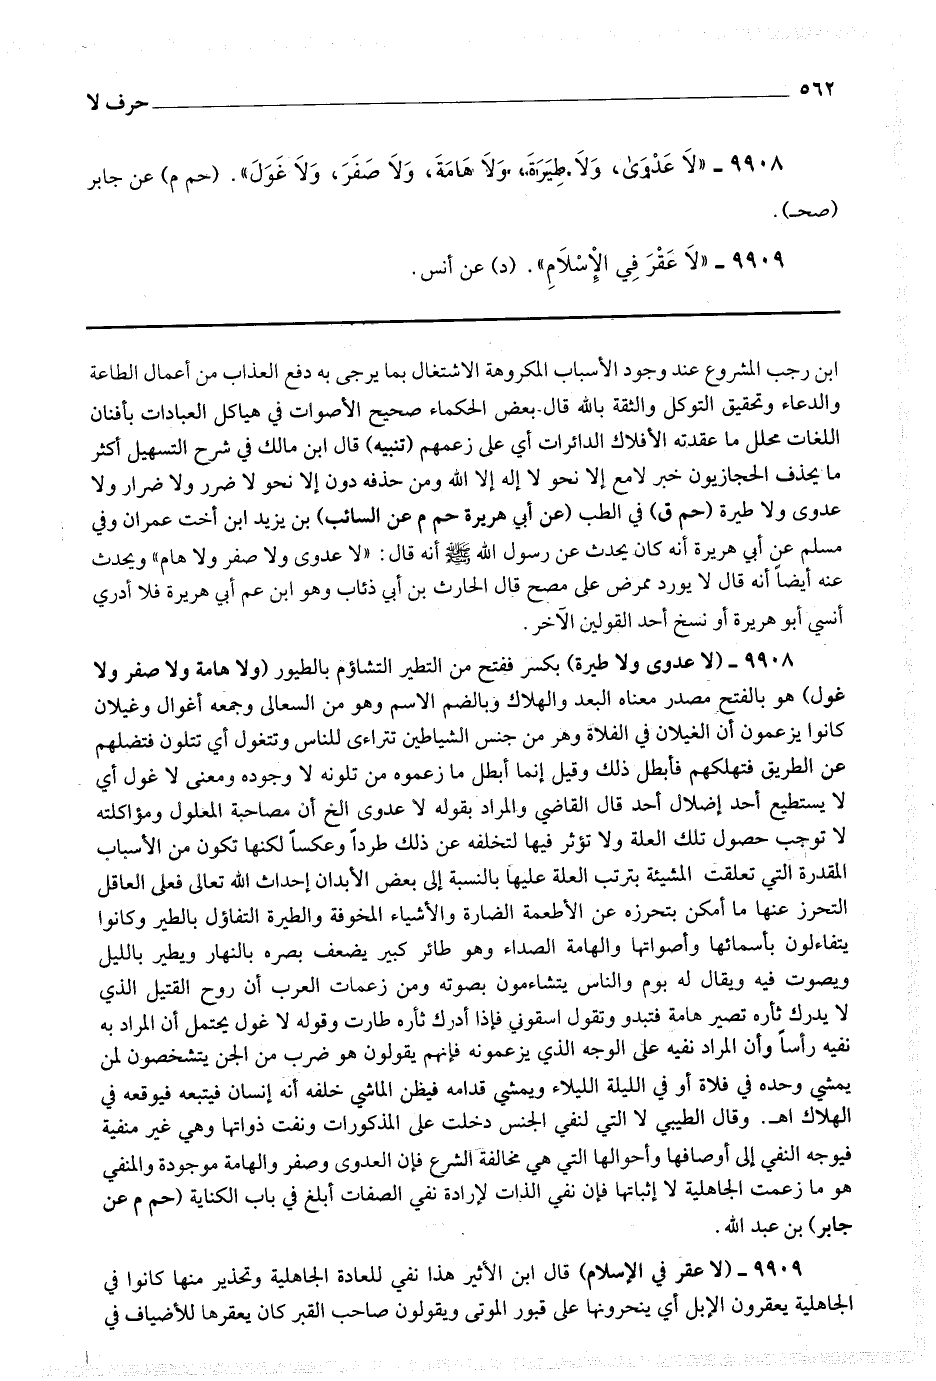 ٥٦٢ حرف لا
٩٩٠٨ ـ «لاَ عَدْوَىٰ، وَلاَ طِيَرَةَ، وَلاَ هَامَةَ، وَلاَ صَفَرَ، وَلاَ غَوَلَ». (حم م) عن جابر
(صحـ).
٩٩٠٩ ـ «لاَ عَقْرَ فِي الْإِسْلَامِ». (د) عن أنس.
ابن رجب المشروع عند وجود الأسباب المكروهة الاشتغال بما يرجى به دفع العذاب من أعمال الطاعة
والدعاء وتحقيق التوكل والثقة بالله قال بعض الحكماء صحيح الأصوات في هياكل العبادات بأفنان
اللغات محلل ما عقدته الأفلاك الدائرات أي على زعمهم (تنبيه) قال ابن مالك في شرح التسهيل أكثر
ما يحذف الحجازيون خبر لامع إلا نحو لا إله إلا الله ومن حذفه دون إلا نحو لا ضرر ولا ضرار ولا
عدوى ولا طيرة (حم ق) في الطب (عن أبي هريرة حم م عن السائب) بن يزيد ابن أخت عمران وفي
مسلم عن أبي هريرة أنه كان يحدث عن رسول الله ﷺ أنه قال: «لا عدوى ولا صفر ولا هام» ويحدث
عنه أيضاً أنه قال لا يورد ممرض على مصح قال الحارث بن أبي ذئاب وهو ابن عم أبي هريرة فلا أدري
أنسي أبو هريرة أو نسخ أحد القولين الآخر.
٩٩٠٨ ـ (لا عدوى ولا طيرة) بكسر ففتح من التطير التشاؤم بالطيور (ولا هامة ولا صفر ولا
غول) هو بالفتح مصدر معناه البعد والهلاك وبالضم الاسم وهو من السعالى وجمعه أغوال وغيلان
كانوا يزعمون أن الغيلان في الفلاة وهر من جنس الشياطين تتراءى للناس وتتغول أي تتلون فتضلهم
عن الطريق فتهلكهم فأبطل ذلك وقيل إنما أبطل ما زعموه من تلونه لا وجوده ومعنى لا غول أي
لا يستطيع أحد إضلال أحد قال القاضي والمراد بقوله لا عدوى الخ أن مصاحبة المعلول ومؤاكلته
لا توجب حصول تلك العلة ولا تؤثر فيها لتخلفه عن ذلك طرداً وعكساً لكنها تكون من الأسباب
المقدرة التي تعلقت المشيئة بترتب العلة عليها بالنسبة إلى بعض الأبدان إحداث الله تعالى فعلى العاقل
التحرز عنها ما أمكن بتحرزه عن الأطعمة الضارة والأشياء المخوفة والطيرة التفاؤل بالطير وكانوا
يتفاءلون بأسمائها وأصواتها والهامة الصداء وهو طائر كبير يضعف بصره بالنهار ويطير بالليل
ويصوت فيه ويقال له بوم والناس يتشاءمون بصوته ومن زعمات العرب أن روح القتيل الذي
لا يدرك ثأره تصير هامة فتبدو وتقول اسقوني فإذا أدرك ثأره طارت وقوله لا غول يحتمل أن المراد به
نفيه رأساً وأن المراد نفيه على الوجه الذي يزعمونه فإنهم يقولون هو ضرب من الجن يتشخصون لمن
يمشي وحده في فلاة أو في الليلة الليلاء ويمشي قدامه فيظن الماشي خلفه أنه إنسان فيتبعه فيوقعه في
الهلاك اهـ. وقال الطيبي لا التي لنفي الجنس دخلت على المذكورات ونفت ذواتها وهي غير منفية
فيوجه النفي إلى أوصافها وأحوالها التي هي مخالفة الشرع فإن العدوى وصفر والهامة موجودة والمنفي
هو ما زعمت الجاهلية لا إثباتها فإن نفي الذات لإرادة نفي الصفات أبلغ في باب الكناية (حم م عن
جابر) بن عبد الله.
٩٩٠٩ ـ (لا عقر في الإسلام) قال ابن الأثير هذا نفي للعادة الجاهلية وتحذير منها كانوا في
الجاهلية يعقرون الإبل أي ينحرونها على قبور الموتى ويقولون صاحب القبر كان يعقرها للأضياف في